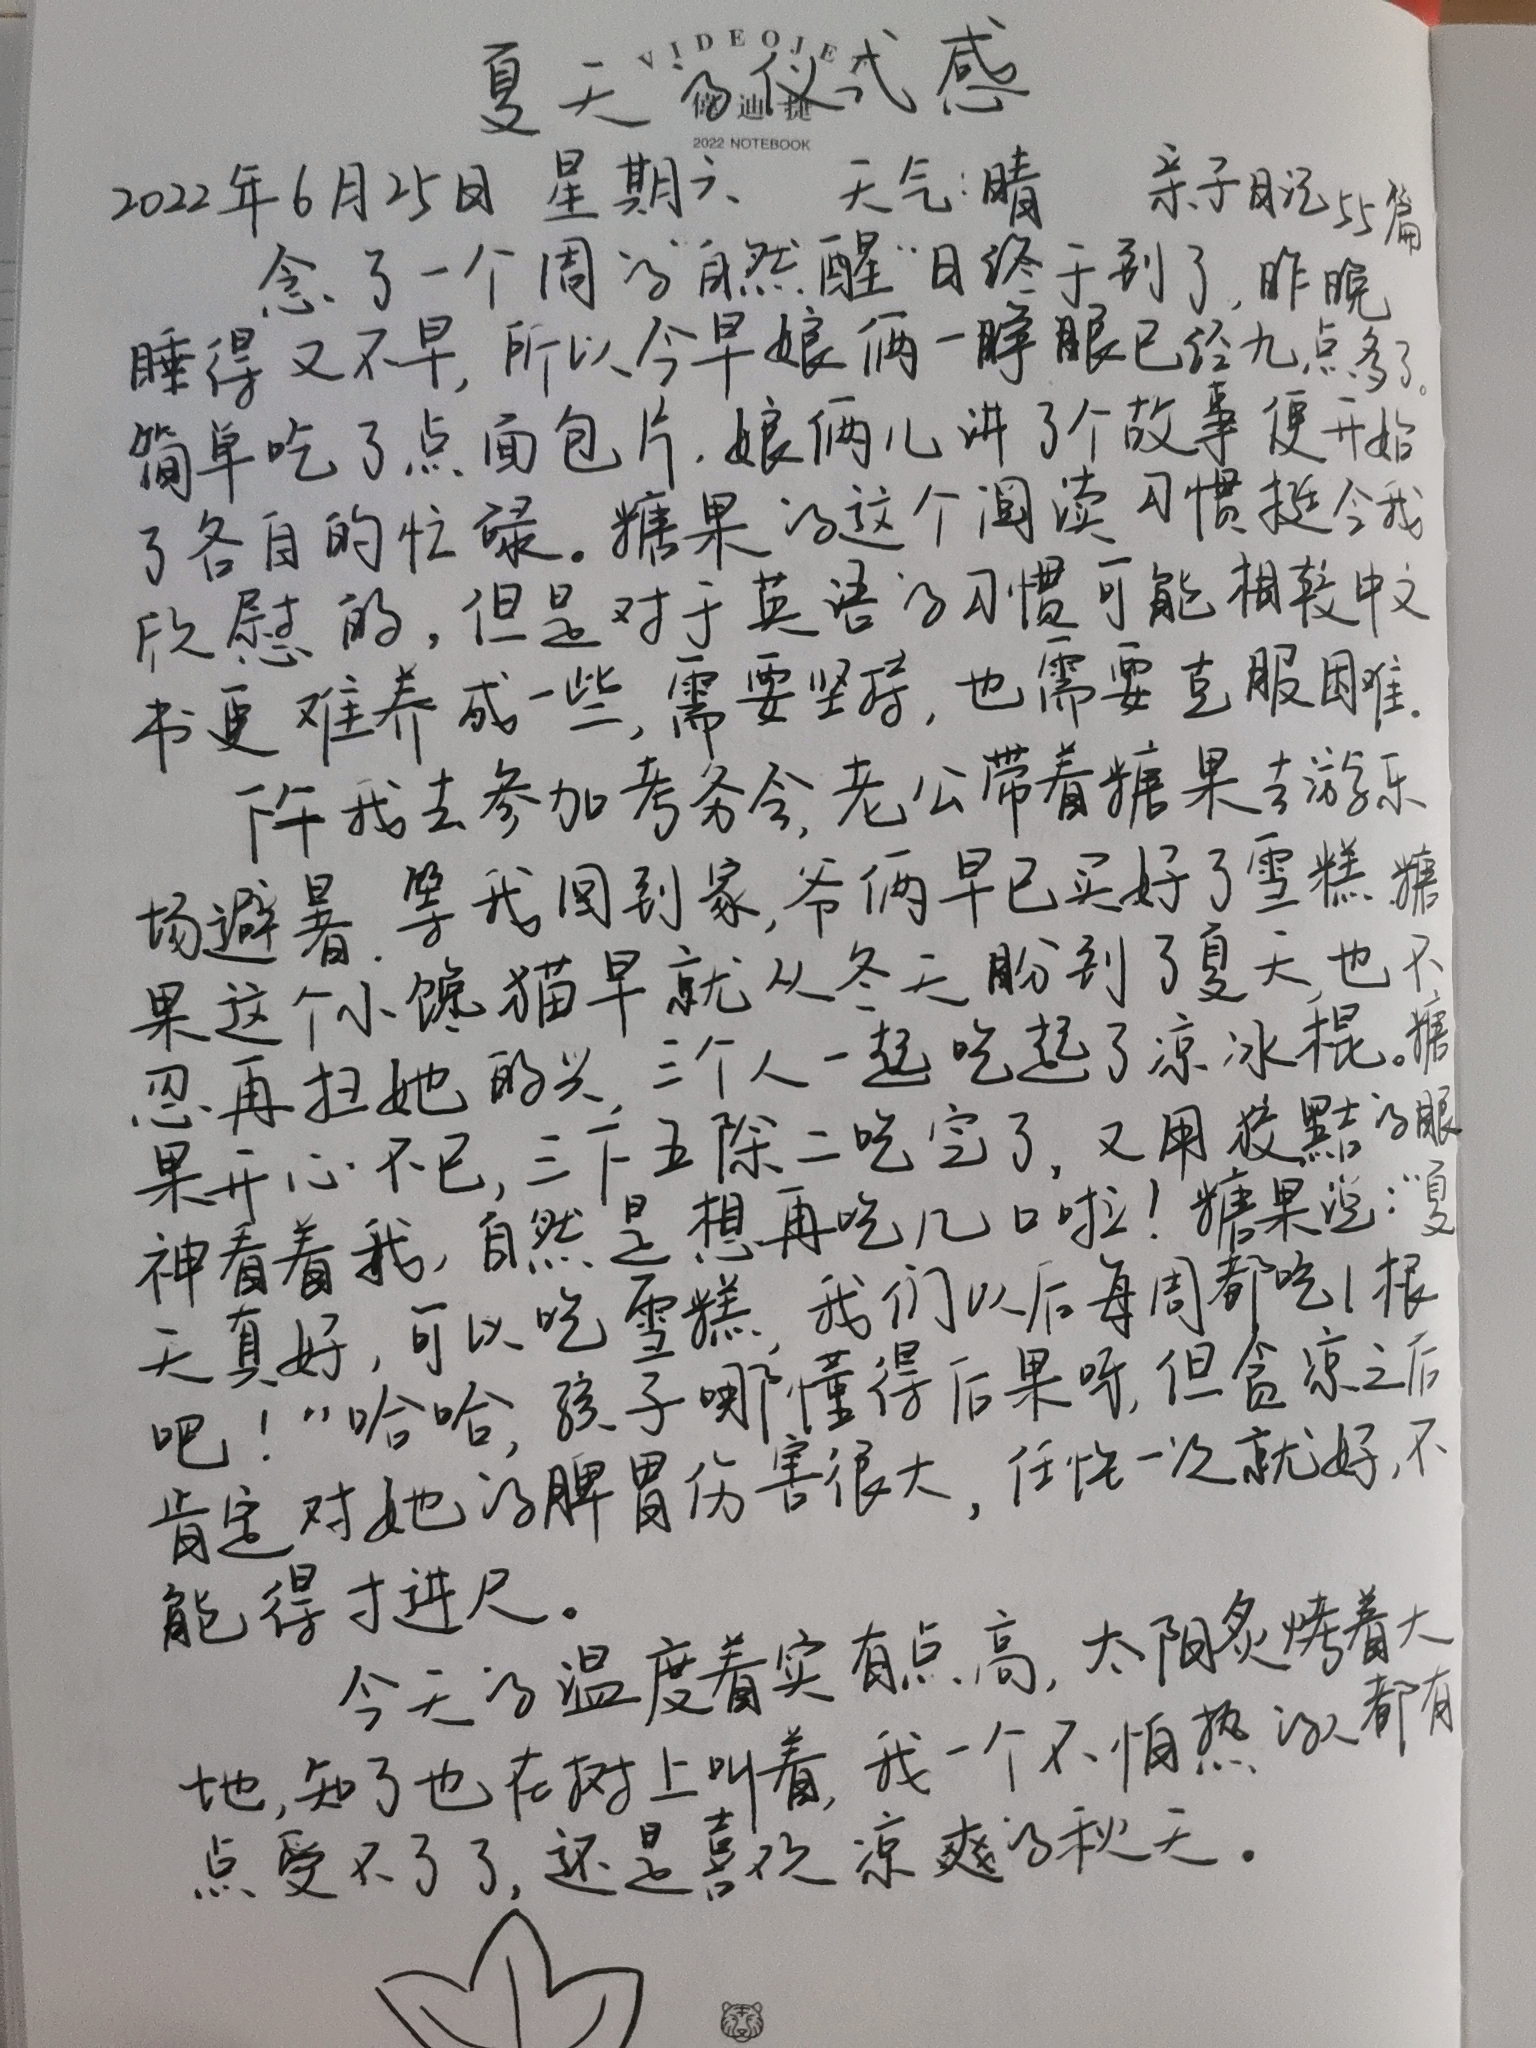 VIDEOJE
夏天的仪式感
迪捷
2022 NOTEBOOK
2022年6月25日 星期六 天气:晴 亲子日记55篇
念了一个周的"自然醒"日终于到了,昨晚
睡得又不早,所以今早娘俩一睁眼已经九点多了。
简单吃了点面包片,娘俩儿讲了个故事便开始
了各自的忙碌。糖果的这个阅读习惯挺令我
欣慰的,但是对于英语的习惯可能相较中文
书更难养成一些,需要坚持,也需要克服困难.
下午我去参加考务会,老公带着糖果去游乐
场避暑.等我回到家,爷俩早已买好了雪糕.糖
果这个小馋猫早就从冬天盼到了夏天,也不
忍再扫她的兴,三个人一起吃起了凉冰棍。糖
果开心不已,三下五除二吃完了,又用狡黠的眼
神看着我,自然是想再吃几口啦!糖果说:"夏
天真好,可以吃雪糕,我们以后每周都吃1根
吧!"哈哈,孩子哪懂得后果呀,但贪凉之后
肯定对她的脾胃伤害很大,任性一次就好,不
能得寸进尺。
今天的温度着实有点高,太阳炙烤着大
地,知了也在树上叫着,我一个不怕热的人都有
点受不了了,还是喜欢凉爽的秋天。